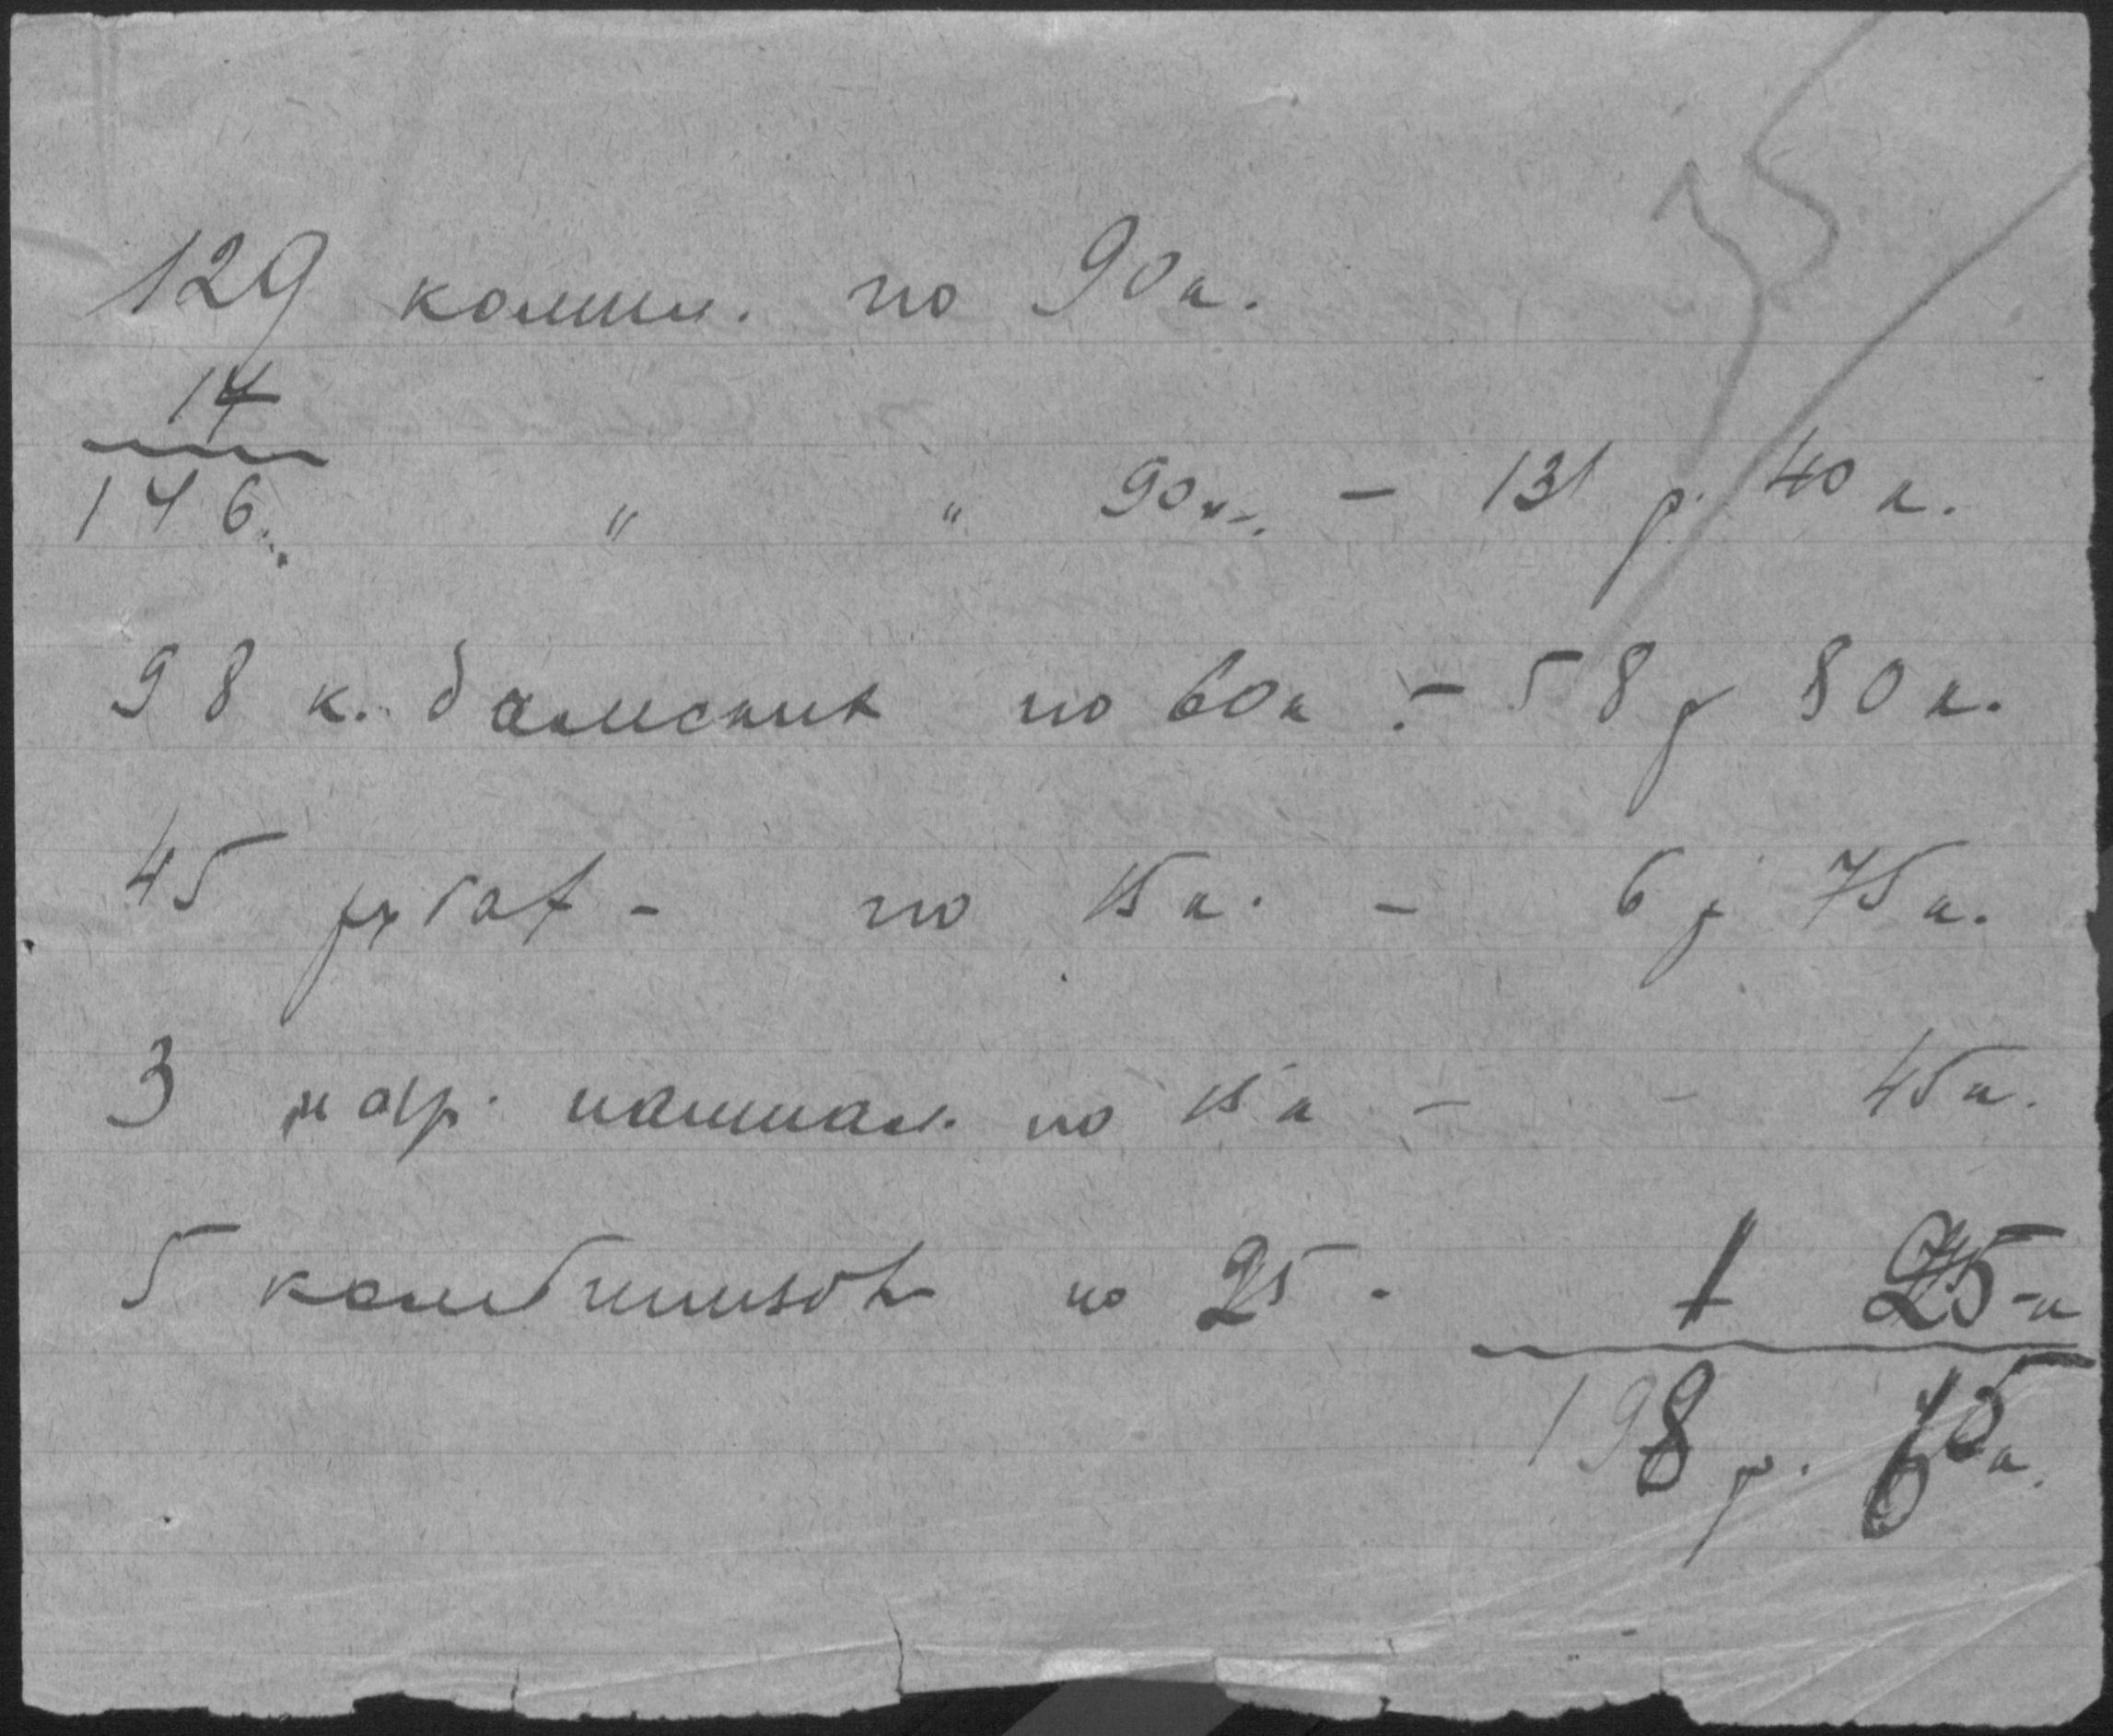 129 компл. по 90к.
17
146 " " 90к. - 131 р. 40 к.
98 к. дамских по 60к - 58р 80к.
45 рубах - по 15к. - 6р 75к.
3 пар. панталон. по 15к - - 45к.
5 комбинизов по 25 - 1 25к
198 р. 65к.